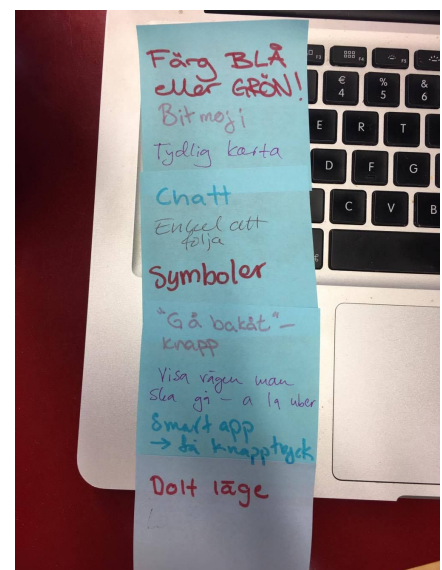 Färg BLÅ
eller GRÖN!
Bitmoji
Tydlig karta
Chatt
Enkel att
följa
Symboler
"Gå bakåt"-
knapp
Visa vägen man
ska gå - a la uber
Smart app
→ få knapptryck
Dolt läge
€
4
%
5
&
6
E
R
T
D
F
G
C
V
B